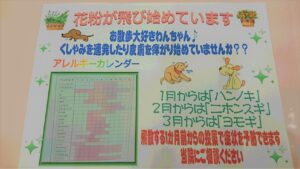 花粉が飛び始めています
お散歩大好きわんちゃん♪
くしゃみを連発したり皮膚を痒がり始めていませんか??
アレルギーカレンダー
1月からは「ハンノキ」
2月からは「ニホンスギ」
3月からは「ヨモギ」
飛散する1か月前からの投薬で症状を予防できます
当院にご相談ください